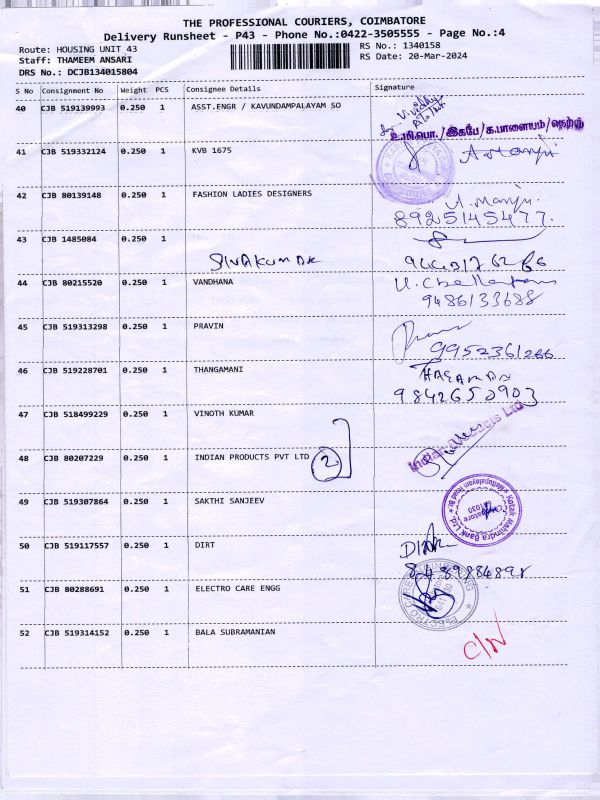 THE PROFESSIONAL COURIERS, COIMBATORE
Delivery Runsheet - P43 - Phone No.:0422-3505555 - Page No.:4
Route: HOUSING UNIT 43 RS No.: 1340158
Staff: THAMEEM ANSARI RS Date: 20-Mar-2024
DRS No.: DCJB134015804
S No Consignment No Weight PCS Consignee Details Signature
40 CJB 519139993 0.250 1 ASST.ENGR / KAVUNDAMPALAYAM SO
உ.மி.பொ./இகபே/க.பாளையம்/
41 CJB 519332124 0.250 1 KVB 1675
42 CJB 80139148 0.250 1 FASHION LADIES DESIGNERS
8925145477
43 CJB 1485084 0.250 1
SIVAKUMAR
44 CJB 80215520 0.250 1 VANDHANA
9486133688
45 CJB 519313298 0.250 1 PRAVIN
9952361266
46 CJB 519228701 0.250 1 THANGAMANI
9842652903
47 CJB 518499229 0.250 1 VINOTH KUMAR
48 CJB 80207229 0.250 1 INDIAN PRODUCTS PVT LTD 2
49 CJB 519307864 0.250 1 SAKTHI SANJEEV
Kotak Mahindra Bank Ltd.
50 CJB 519117557 0.250 1 DIRT
51 CJB 80288691 0.250 1 ELECTRO CARE ENGG
52 CJB 519314152 0.250 1 BALA SUBRAMANIAN
C/N